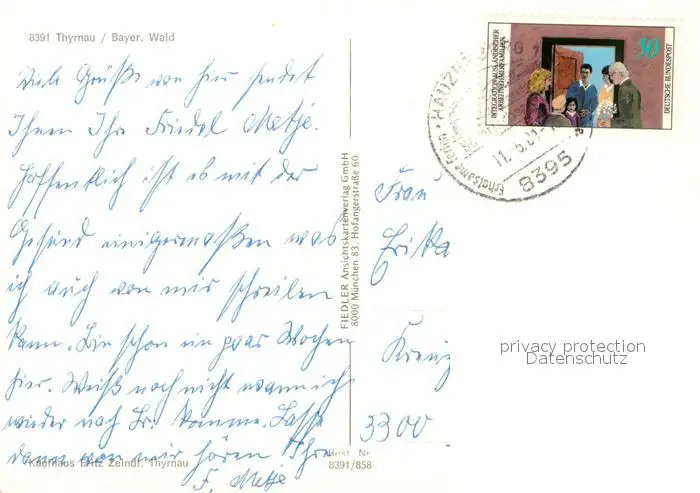 8391 Thyrnau / Bayer. Wald
Viele Grüße von hier sendet
Ihnen Ihr Friedel Metje.
Hoffentlich ist es mit der
Gesund einigermaßen was
ich auch von mir schreiben
kann. Bin schon ein paar Wochen
hier. Weiß noch nicht wann ich
wieder nach Br. komme. Lasse
dann von mir hören Ihr
F. Metje
Kaufhaus Fritz Zeindl. Thyrnau
Best. Nr.
8391/858
FIEDLER Ansichtskartenverlag GmbH
8000 München 83, Hofangerstraße 60
Frau
Erika
3300
INTEGRATION AUSLÄNDISCHER
ARBEITNEHMERFAMILIEN
50
DEUTSCHE BUNDESPOST
HAUZENBERG 1
11.-5.81
8395
privacy protection
Datenschutz